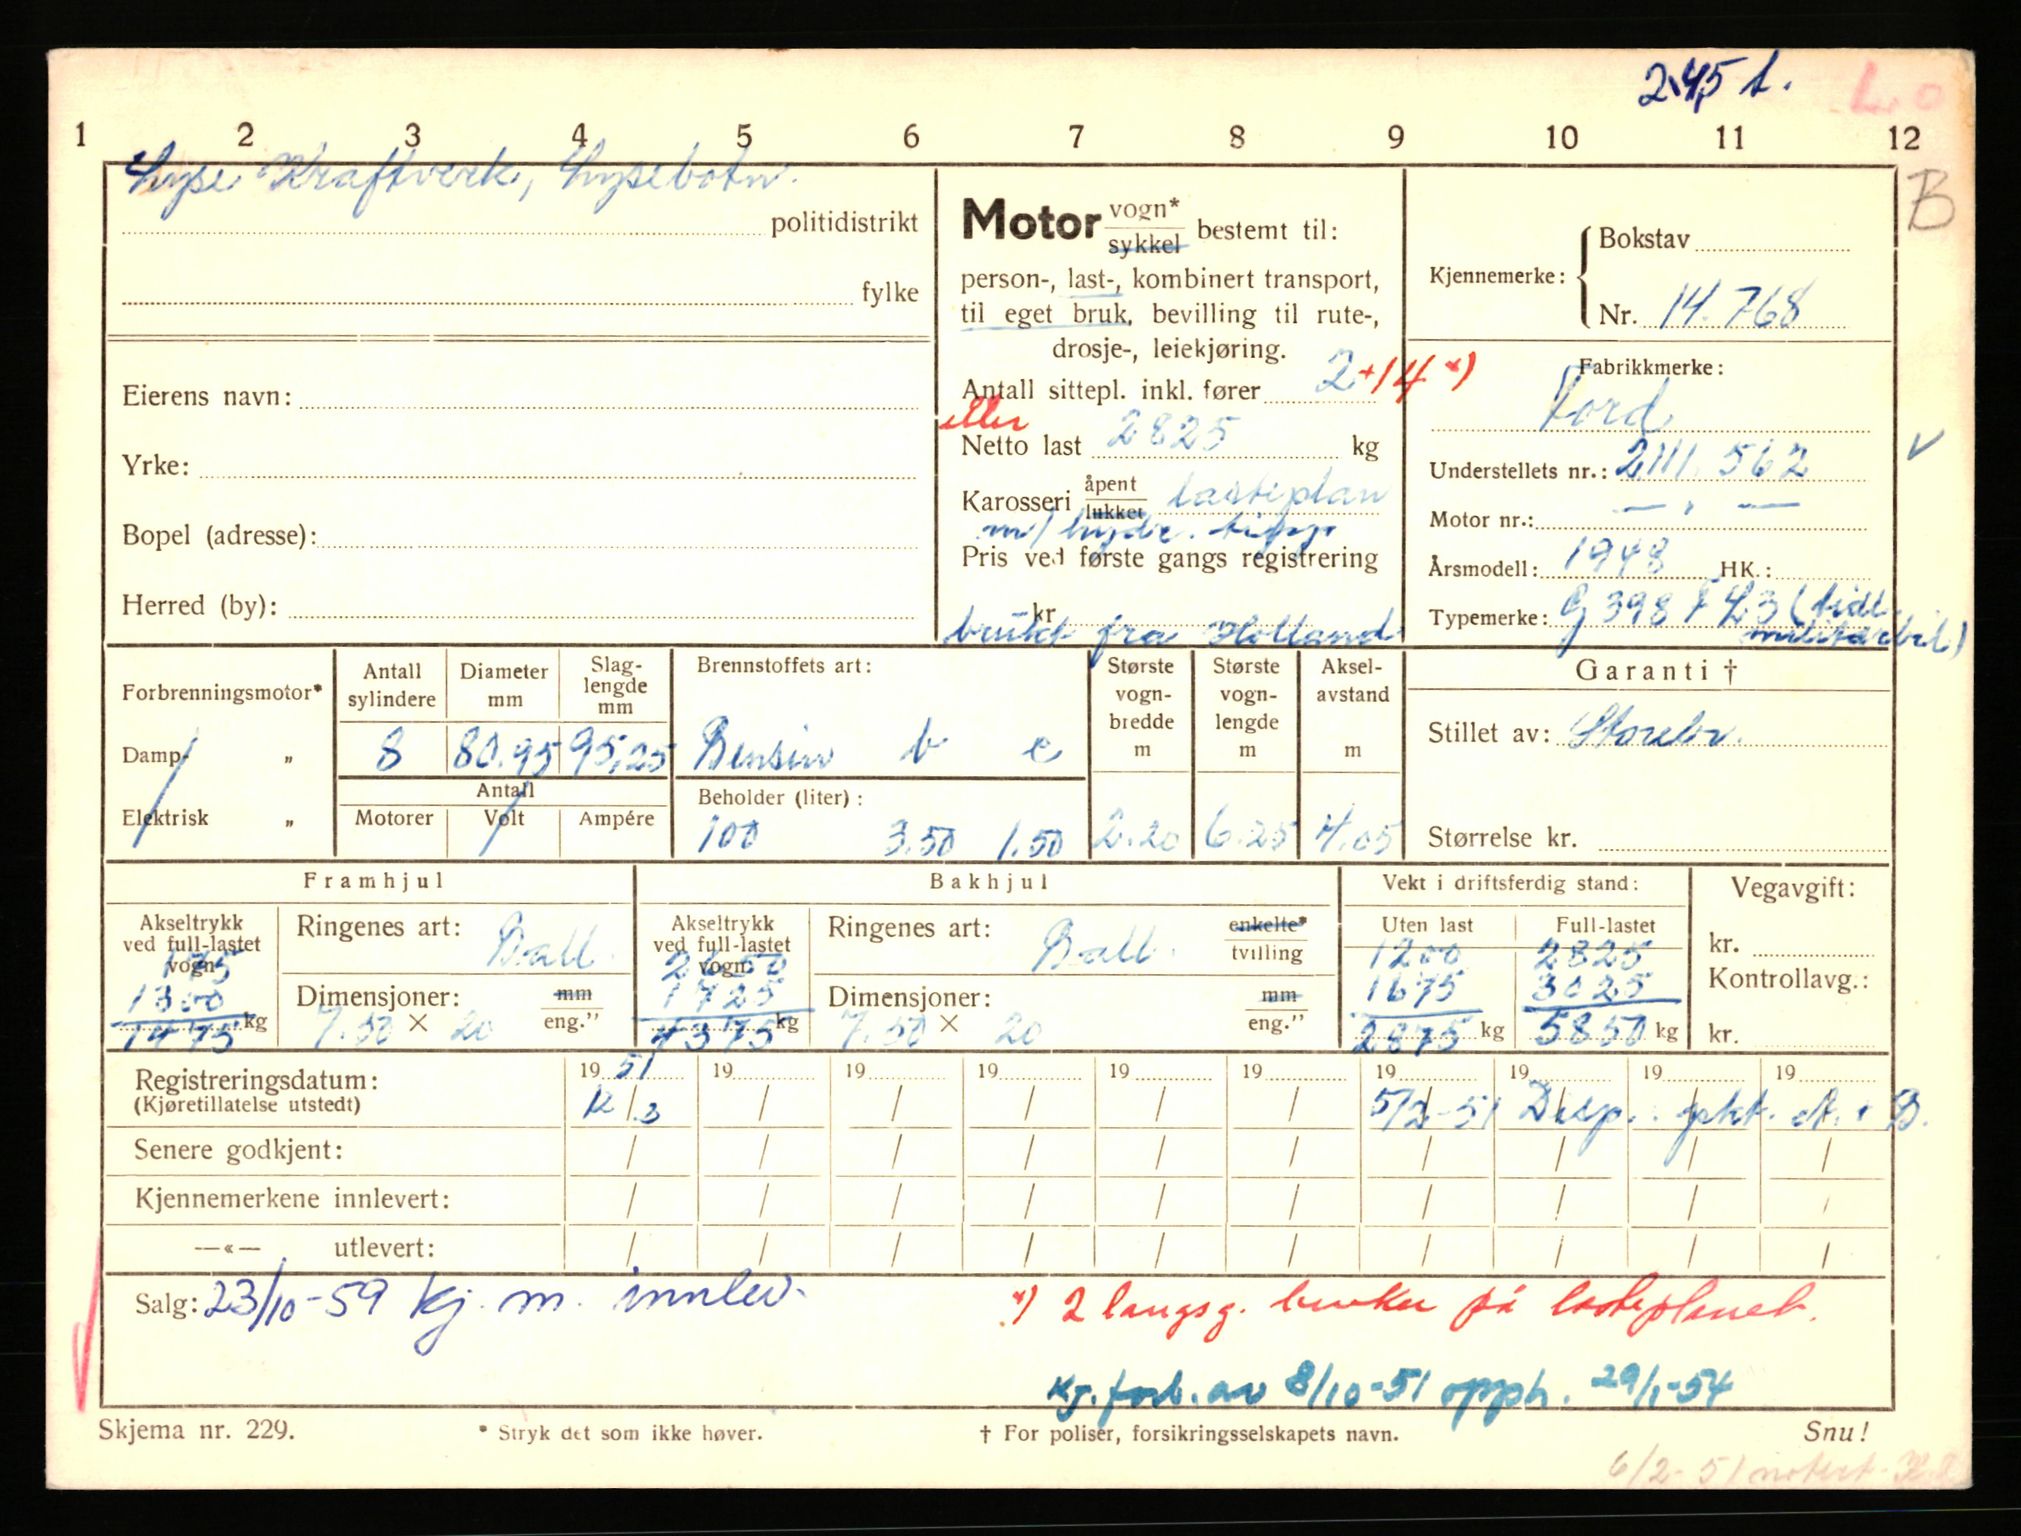 2.45 t. L. o
1 2 3 4 5 6 7 8 9 10 11 12
Lyse Kraftverk, Lysebotn.
B
politidistrikt
fylke
Eierens navn:
Yrke:
Bopel (adresse):
Herred (by):
Motor vogn* sykkel bestemt til:
person-, last-, kombinert transport,
til eget bruk, bevilling til rute-,
drosje-, leiekjøring.
Antall sittepl. inkl. fører 2 +14 *)
eller
Netto last 2825 kg
Karosseri åpent lukket lasteplan
m/ hydr. tipp
Pris ved første gangs registrering
kr
brukt fra Holland
Kjennemerke: Bokstav
Nr. 14.768
Fabrikkmerke:
Ford
Understellets nr.: 2111.562
Motor nr.: — " —
Årsmodell: 1948 HK.:
Typemerke: G 398 T L3 (tidl.
militærbil)
Forbrenningsmotor*
Damp- „
Elektrisk „
Antall sylindere
Diameter mm
Slag-lengde mm
8 80.95 95,25
Antall
Motorer Volt Ampére
Brennstoffets art:
Bensin b e
Beholder (liter):
100 3.50 1.50
Største vogn-bredde m
2.20
Største vogn-lengde m
6.25
Aksel-avstand m
4.05
Garanti †
Stillet av: Storebr.
Størrelse kr.
Framhjul
Akseltrykk ved full-lastet vogn
175
1300
1475 kg
Ringenes art: Ball.
Dimensjoner: mm
7.50 × 20 eng.”
Bakhjul
Akseltrykk ved full-lastet vogn
2650
1725
4375 kg
Ringenes art: Ball. enkelte* tvilling
Dimensjoner: mm
7.50 × 20 eng.”
Vekt i driftsferdig stand:
Uten last Full-lastet
1200 2825
1675 3025
2875 kg 5850 kg
Vegavgift:
kr.
Kontrollavg.:
kr.
Registreringsdatum: 19 51 19 19 19 19 19 19 19 19 19
(Kjøretillatelse utstedt) 12/3 / / / / / 5/2-51 Disp. gkt. A. + B.
Senere godkjent: / / / / / / / / / /
Kjennemerkene innlevert: / / / / / / / / / /
—«— utlevert: / / / / / / / / / /
Salg: 23/10-59 kj. m. innlev.
*) 2 langsg. benker på lasteplanet.
Kj. forb. av 8/10-51 opph. 29/1-54
Skjema nr. 229.
* Stryk det som ikke høver.
† For poliser, forsikringsselskapets navn.
Snu!
6/2-51 notert